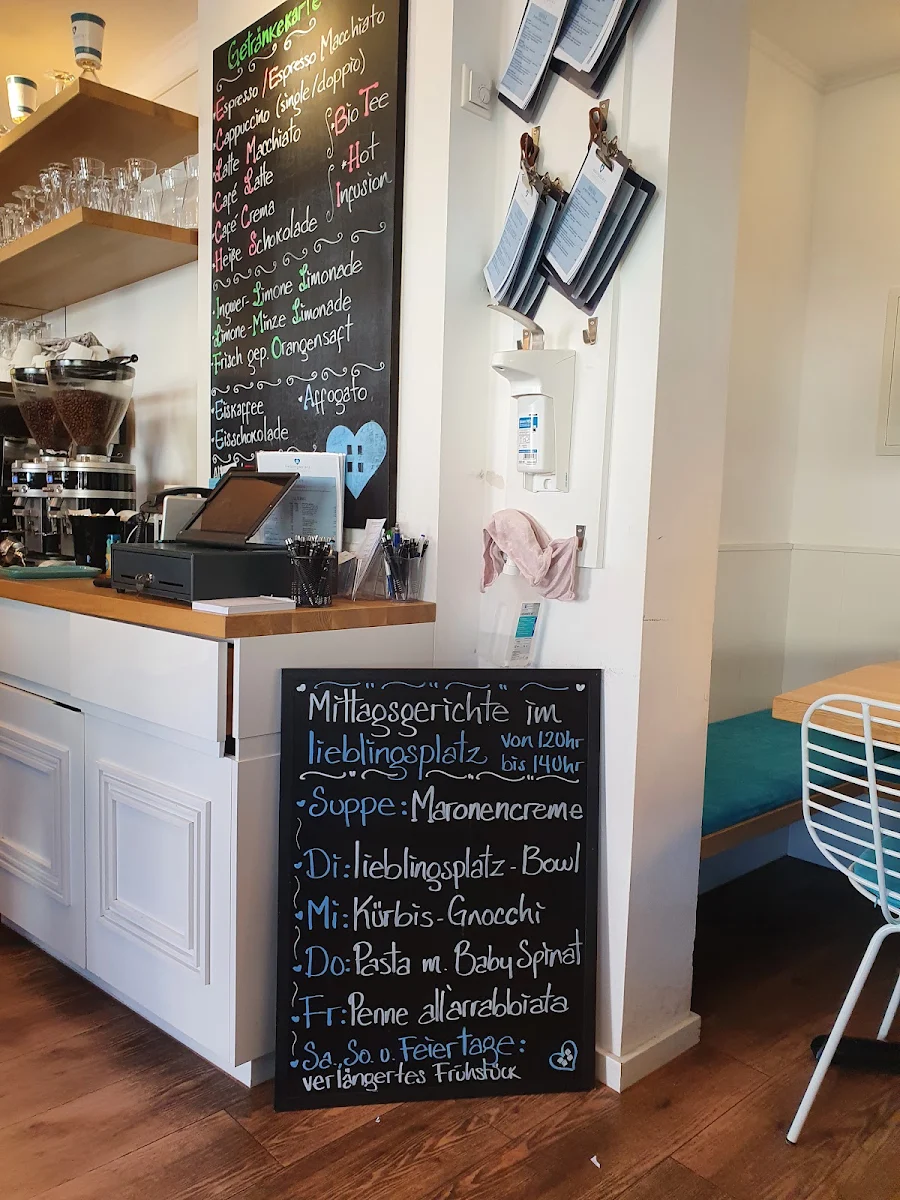 Getränkekarte
•Espresso / Espresso Macchiato
•Cappuccino (single/doppio)
•Latte Macchiato
•Café Latte
•Café Crema
•Heiße Schokolade
•Bio Tee
*Hot
*Infusion
•Ingwer-Limone Limonade
•Limone-Minze Limonade
•Frisch gep. Orangensaft
•Eiskaffee
•Eisschokolade
•Affogato
Mittagsgerichte im
lieblingsplatz von 12Uhr
bis 14Uhr
Suppe: Maronencreme
Di: lieblingsplatz-Bowl
Mi: Kürbis-Gnocchi
Do: Pasta m. Baby Spinat
Fr: Penne all'arrabbiata
Sa, So. u. Feiertage:
verlängertes Frühstück